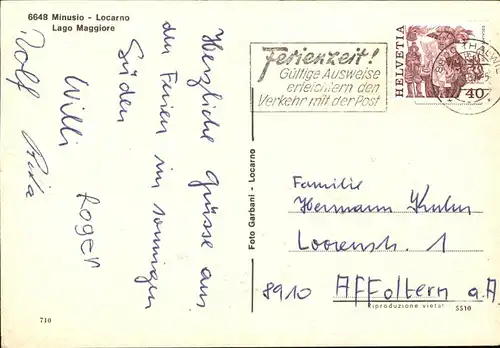 6648 Minusio - Locarno
Lago Maggiore
Herzliche Grüsse aus
den Ferien im sonnigen
Süden
Willi Roger
Rolf
Foto Garbani - Locarno
Ferienzeit!
Gültige Ausweise
erleichtern den
Verkehr mit der Post
HELVETIA
40
Familie
Hermann Kuhn
Loorenstr. 1
8910 Affoltern a.A.
Riproduzione vietata
710
5510